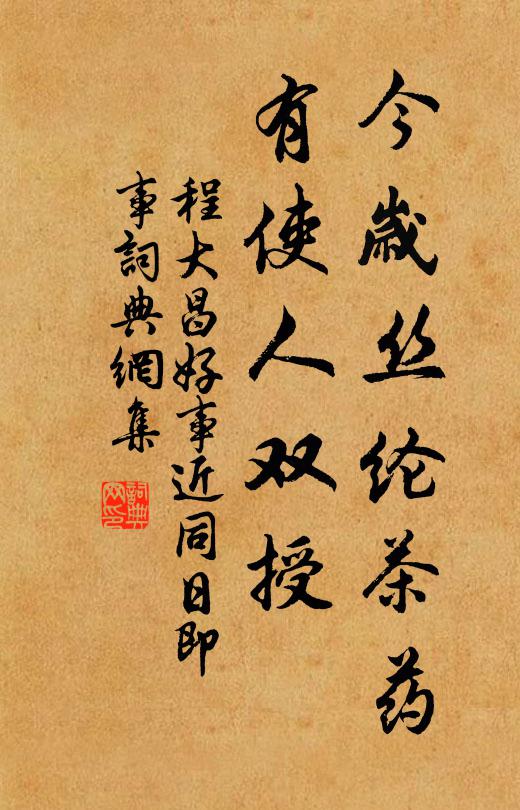 今歲丝纶茶药
有使人双授
程大昌好事近同日即
事詞典網集
詞典
网印